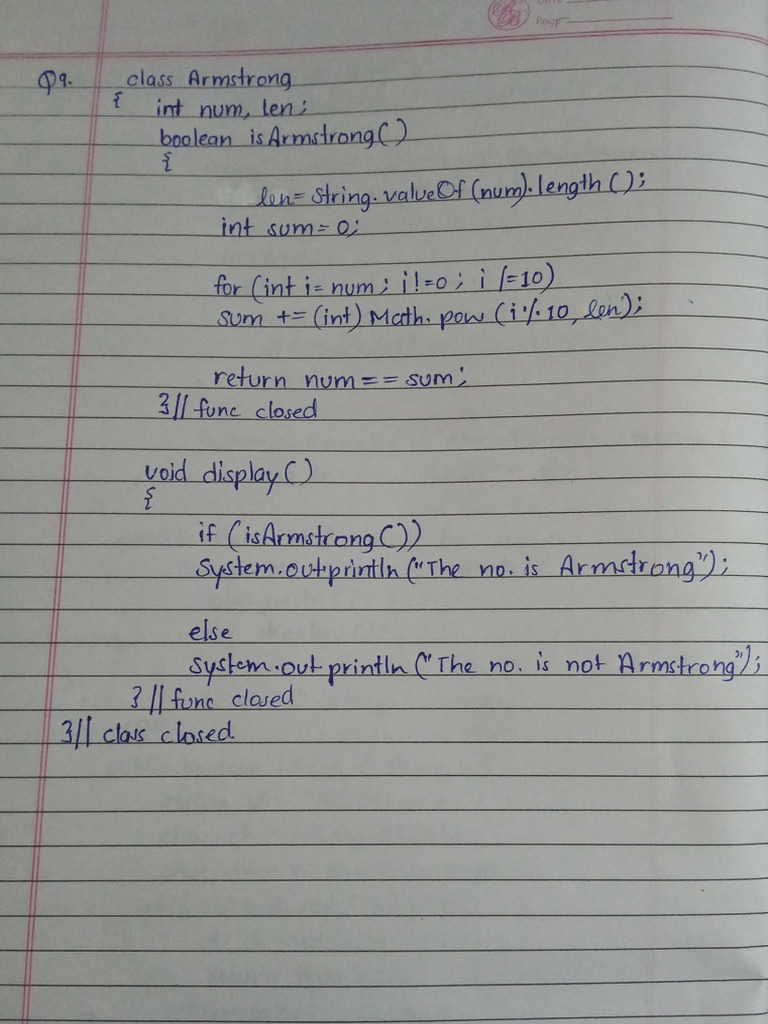 Date
Page
Q9. class Armstrong
{ int num, len;
boolean isArmstrong()
{
len = String.valueOf(num).length();
int sum = 0;
for (int i = num; i != 0; i /= 10)
sum += (int) Math.pow (i % 10, len);
return num == sum;
}// func closed
void display()
{
if (isArmstrong())
System.out.println("The no. is Armstrong");
else
System.out.println("The no. is not Armstrong");
} // func closed
}// class closed